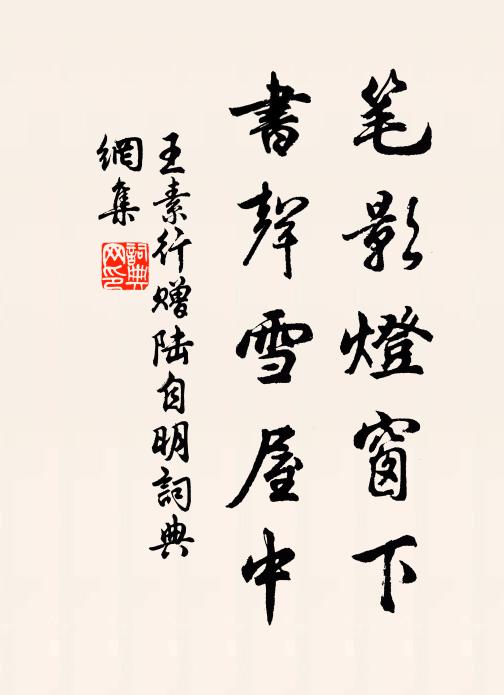 笔影燈窗下
書聲雪屋中
王素行赠陆自明詞典
網集
詞典
网印